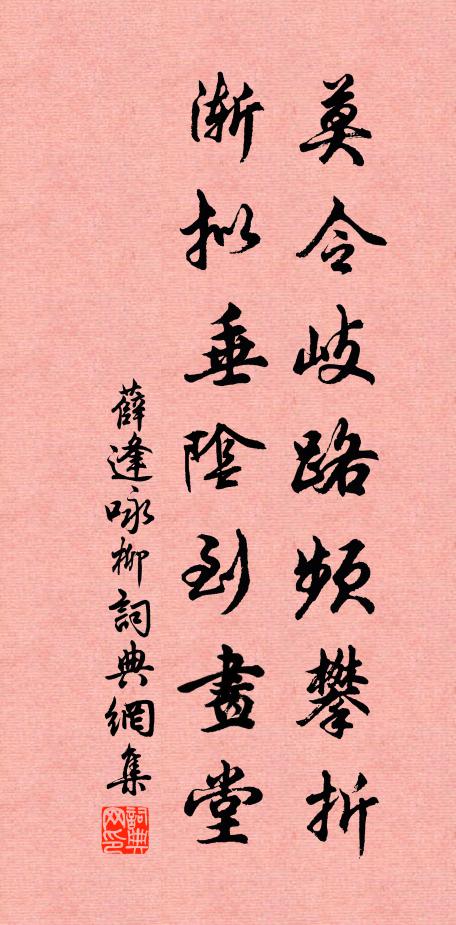 莫令岐路頻攀折
漸拟垂陰到畫堂
薛逢咏柳詞典網集
詞典网印